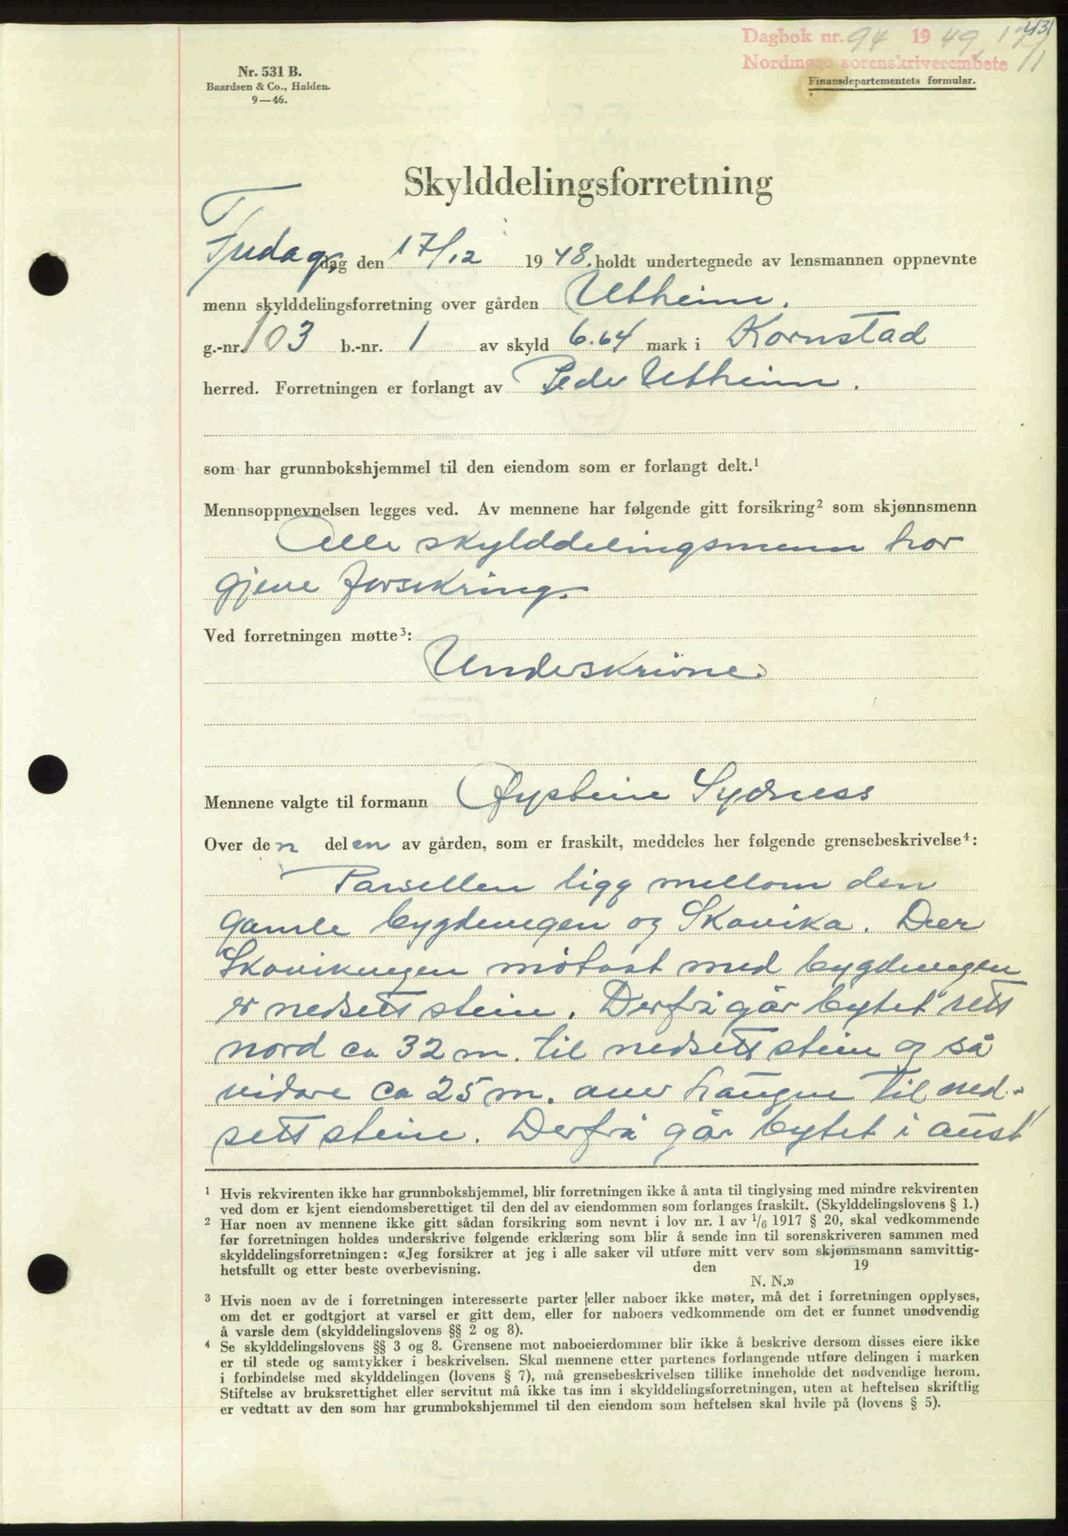 431
Dagbok nr. 94 1949, 17/1
Nordmøre sorenskriverembete
Nr. 531 B.
Baardsen & Co., Halden.
9—46.
Finansdepartementets formular.
Skylddelingsforretning
dag den 17/12 1948. holdt undertegnede av lensmannen oppnevnte
menn skylddelingsforretning over gården Utheim.
g.-nr. 103 b.-nr. 1 av skyld 6.64 mark i Kornstad
herred. Forretningen er forlangt av Peder Utheim.
som har grunnbokshjemmel til den eiendom som er forlangt delt.¹
Mennsoppnevnelsen legges ved. Av mennene har følgende gitt forsikring² som skjønnsmenn
Alle skylddelingsmenn har
gjeve forsikring.
Ved forretningen møtte³:
Underskrivne.
Mennene valgte til formann Øystein Sydness
Over den delen av gården, som er fraskilt, meddeles her følgende grensebeskrivelse⁴:
Parsellen ligg mellom den
gamle bygdevegen og Skavika. Der
Skavikvegen møtast med bygdevegen
er nedsett stein. Derfrå går bytet rett
nord ca 32 m. til nedsett stein og så
vidare ca 25 m. over haugen til ned-
sett stein. Derfrå går bytet i aust
¹ Hvis rekvirenten ikke har grunnbokshjemmel, blir forretningen ikke å anta til tinglysing med mindre rekvirenten
ved dom er kjent eiendomsberettiget til den del av eiendommen som forlanges fraskilt. (Skylddelingslovens § 1.)
² Har noen av mennene ikke gitt sådan forsikring som nevnt i lov nr. 1 av 1/6 1917 § 20, skal vedkommende
før forretningen holdes underskrive følgende erklæring som blir å sende inn til sorenskriveren sammen med
skylddelingsforretningen: «Jeg forsikrer at jeg i alle saker vil utføre mitt verv som skjønnsmann samvittig-
hetsfullt og etter beste overbevisning. den 19
N. N.»
³ Hvis noen av de i forretningen interesserte parter eller naboer ikke møter, må det i forretningen opplyses,
om det er godtgjort at varsel er gitt dem, eller for naboers vedkommende om det er funnet unødvendig
å varsle dem (skylddelingslovens §§ 2 og 8).
⁴ Se skylddelingslovens §§ 3 og 8. Grensene mot naboeierdommer blir ikke å beskrive dersom disses eiere ikke
er til stede og samtykker i beskrivelsen. Skal mennene etter partenes forlangende utføre delingen i marken
i forbindelse med skylddelingen (lovens § 7), må grensebeskrivelsen tillike inneholde det nødvendige herom.
Stiftelse av bruksrettighet eller servitut må ikke tas inn i skylddelingsforretningen, uten at heftelsen skriftlig
er vedtatt av den som har grunnbokshjemmel til den eiendom som heftelsen skal hvile på (lovens § 5).